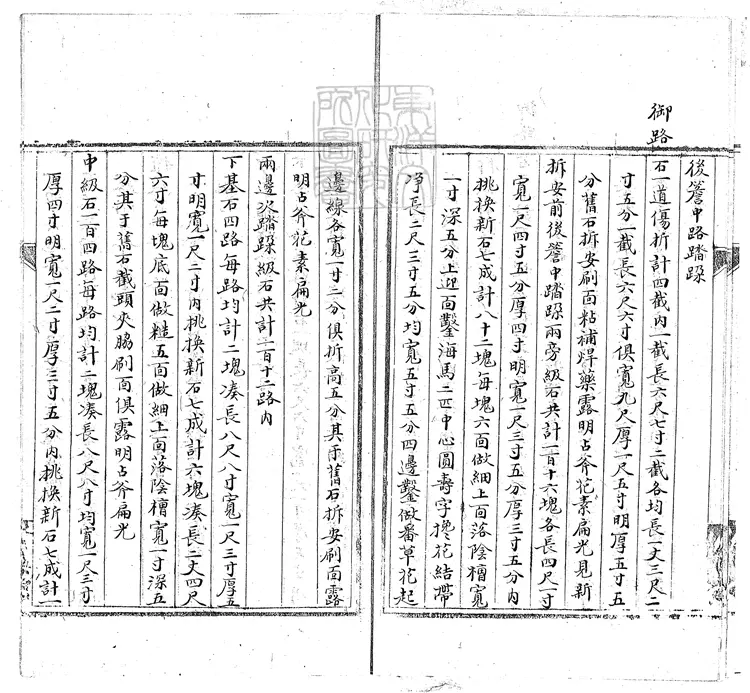 後簷中路踏跺
御路
石一道傷折計四截內一截長六尺七寸二截各均長一丈三尺二
寸五分一截長六尺六寸俱寬九尺厚一尺五寸明厚五寸五
分舊石拆安刷面粘補焊藥露明占斧花素扁光見新
拆安前後簷中踏跺兩旁級石共計一百十六塊各長四尺一寸
寬一尺四寸五分厚四寸明寬一尺三寸五分厚三寸五分內
挑換新石七成計八十二塊每塊六面做細上面落陰檀寬
一寸深五分上迎面鑿海馬二匹中心圓壽字攙花結帶
凈長二尺三寸五分均寬五寸五分四邊鑿做番草花起
邊線各寬一寸二分俱折高五分其于舊石拆安刷面露
明占斧花素扁光
兩邊次踏跺級石共計一百十二路內
下基石四路每路均計二塊湊長八尺八寸寬一尺三寸厚五
寸明寬一尺二寸內挑換新石七成計六塊湊長二丈四尺
六寸每塊底面做糙五面做細上面落陰檀寬一寸深五
分其于舊石截頭夾腸刷面俱露明占斧扁光
中級石一百四路每路均計二塊湊長八尺八寸均寬一尺三寸
厚四寸明寬一尺二寸厚三寸五分內挑換新石七成計一